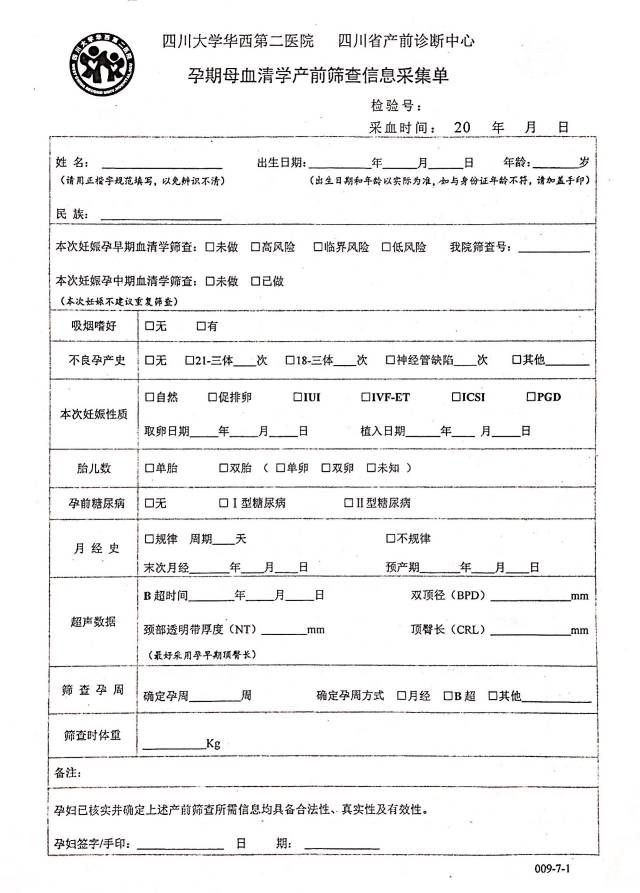 四川大学华西第二医院 四川省产前诊断中心
孕期母血清学产前筛查信息采集单
检验号：
采血时间： 20 年 月 日
姓 名：__________ 出生日期：________年_____月_____日 年龄：______岁
（请用正楷字规范填写，以免辨识不清） （出生日期和年龄以实际为准，如与身份证年龄不符，请加盖手印）
民 族：__________
本次妊娠孕早期血清学筛查：□未做 □高风险 □临界风险 □低风险 我院筛查号：________
本次妊娠孕中期血清学筛查：□未做 □已做
（本次妊娠不建议重复筛查）
吸烟嗜好 □无 □有
不良孕产史 □无 □21-三体___次 □18-三体___次 □神经管缺陷___次 □其他______
本次妊娠性质 □自然 □促排卵 □IUI □IVF-ET □ICSI □PGD
取卵日期____年____月____日 植入日期____年____月____日
胎儿数 □单胎 □双胎 （ □单卵 □双卵 □未知 ）
孕前糖尿病 □无 □Ⅰ型糖尿病 □Ⅱ型糖尿病
月 经 史 □规律 周期___天 □不规律
末次月经_____年____月____日 预产期_____年____月____日
超声数据 B超时间______年____月____日 双顶径（BPD）__________mm
颈部透明带厚度（NT）______mm 顶臀长（CRL）__________mm
（最好采用孕早期顶臀长）
筛 查 孕 周 确定孕周_______周 确定孕周方式 □月经 □B超 □其他________
筛查时体重 ________Kg
备注：
孕妇已核实并确定上述产前筛查所需信息均具备合法性、真实性及有效性。
孕妇签字/手印：__________ 日 期：____________
009-7-1